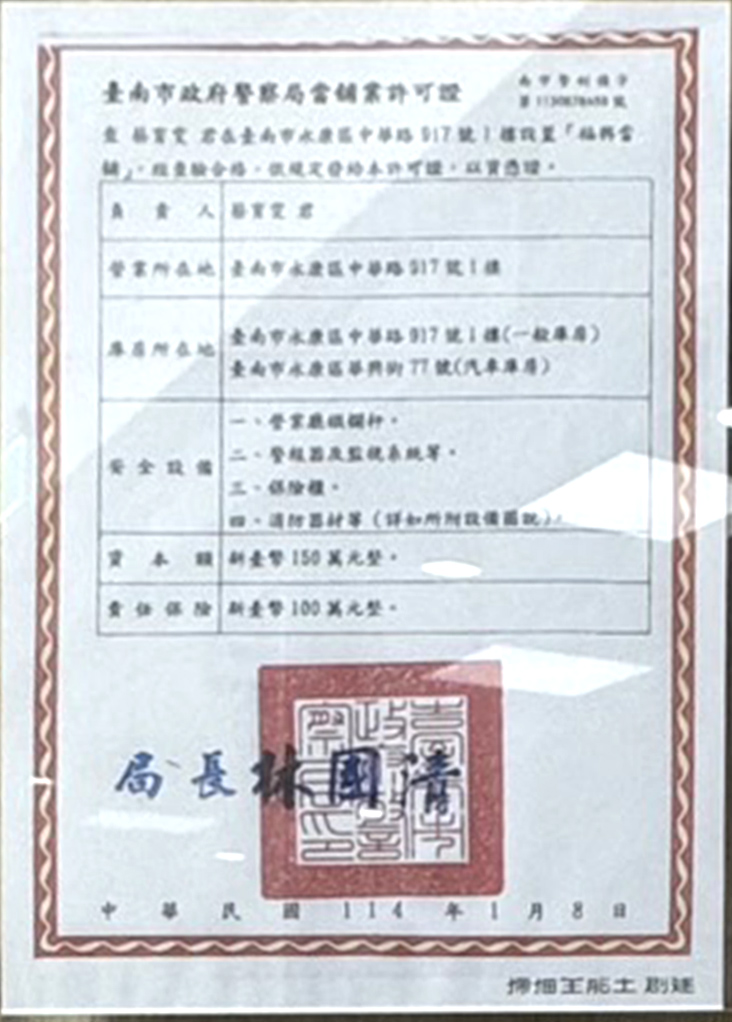 臺南市政府警察局當舖業許可證
南市警刑偵字
第 1130828459 號
查 蔡宥雯 君在臺南市永康區中華路 917 號 1 樓設置「福興當
舖」，經查驗合格，依規定發給本許可證，以資憑證。
負責人 蔡宥雯 君
營業所在地 臺南市永康區中華路 917 號 1 樓
庫房所在地 臺南市永康區中華路 917 號 1 樓(一般庫房)
臺南市永康區華興街 77 號(汽車庫房)
安全設備 一、營業廳鐵欄杆。
二、警報器及監視系統等。
三、保險櫃。
四、消防器材等（詳如所附設備圖說）。
資本額 新臺幣 150 萬元整。
責任保險 新臺幣 100 萬元整。
局長林國清
中華民國 114 年 1 月 8 日